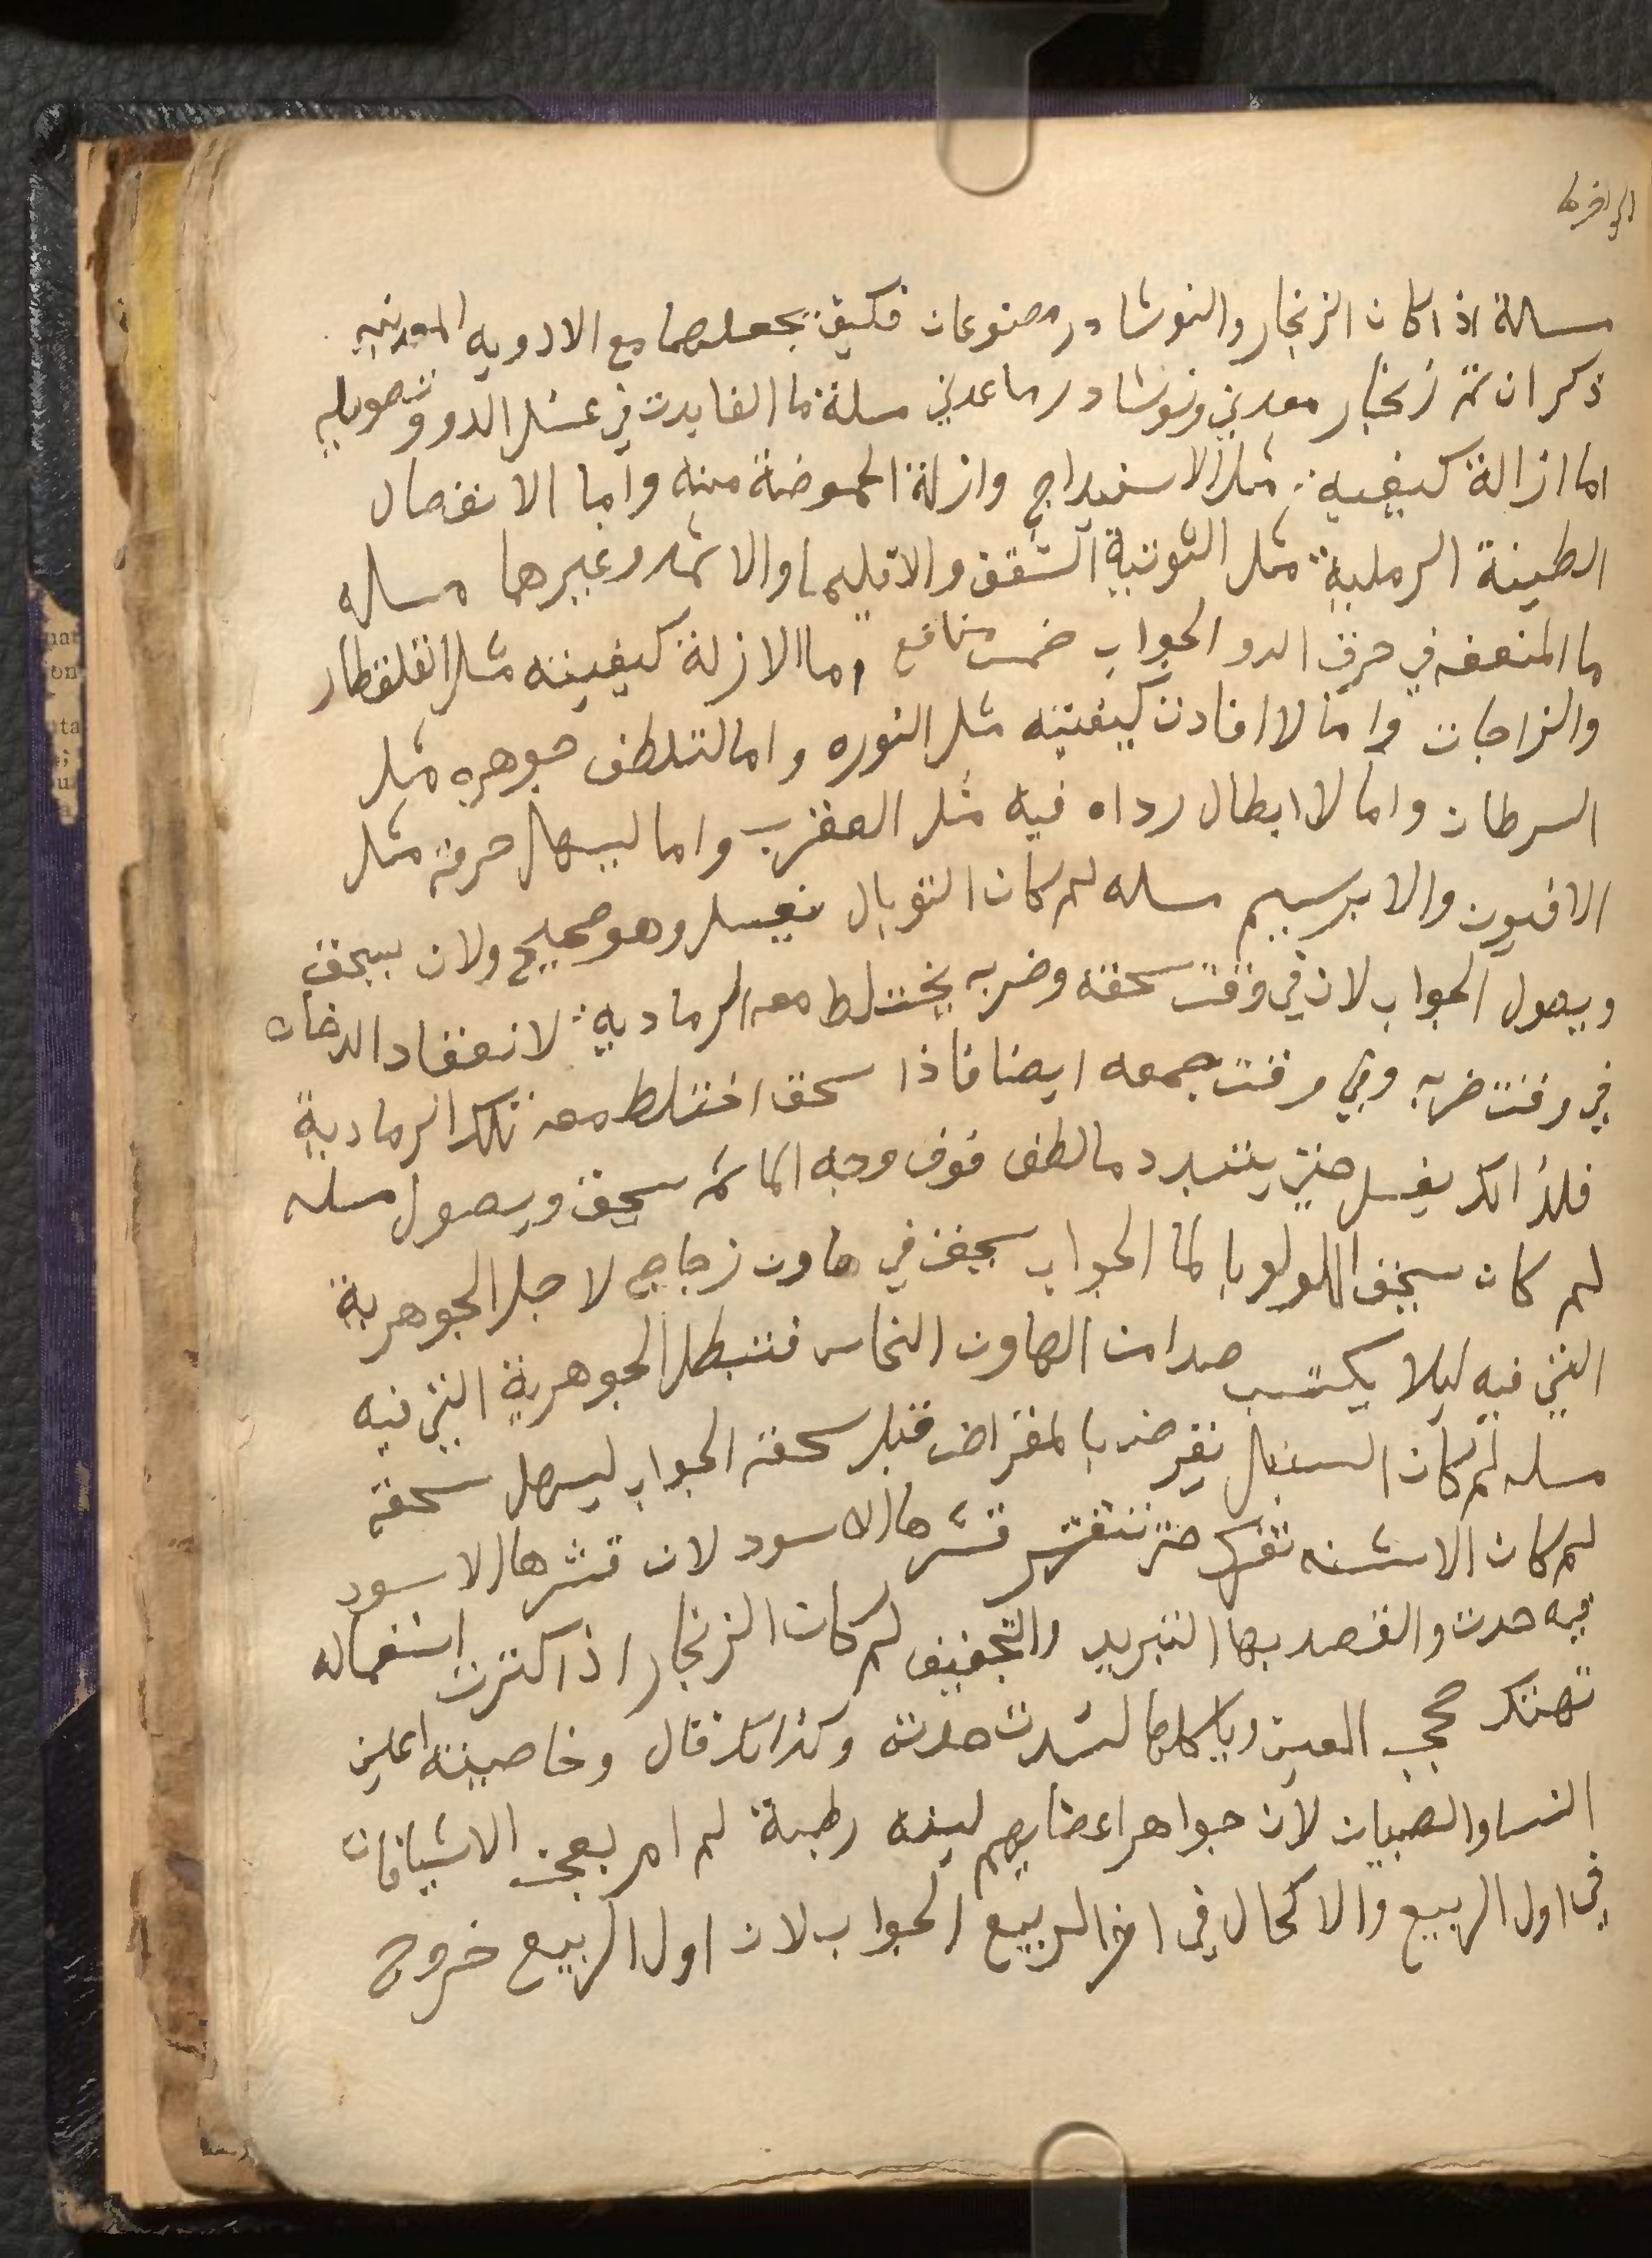 مسالة اذا كان الزنجار والنوشادر مصنوعان فكيف يجعلهما مع الادويه المعدنيه
ذكر ان ثم زنجار معدني ونوشادر ماعدني مسلة ما الفايدت في غسل الدوو وتصويله
اما ازالة كيفيه مثل الاسفيداج وازلة الحموضة منه واما الانفصال
الطينة الرملية مثل التوتية الشقف والاقليميا والاثمد وغيرها مساله
ما المنعفه في حرق الدو الجواب خمس منافع اما الازلة كيفيته مثل القلقطار
والزاجات واما لا افادت كيفيته مثل النوره واما لتلطف جوهره مثل
السرطان واما لا ابطال رداه فيه مثل العقرب واما ليسهل حرقه مثل
الافيون والابرسيم مسله لم كان التوبال يغسل وهو صحيح ولان يسحق
ويصول الجواب لان في وقت سحقه وضربه يختلط معه الرمادية لانعقاد الدخان
في وقت ضربه وفي وقت جمعه ايضا فاذا سحق اختلط معه تلك الرمادية
فلذالك يغسل حتى يتبرد مالطف فوق وجه الما ثم يسحق ويصول مسله
لم كان يسحق اللولو بالما الجواب يسحق في هاون زجاج لاجل الجوهرية
التي فيه ليلا يكتسب صدا من الهاون النحاس فتبطل الجوهرية التي فيه
مسله لم كان السنبل يقرض بالمقراض قبل سحقه الجواب ليسهل سحقه
لم كان الاشنه تفرك حتى تتقشر قشرها الاسود لان قشرها الاسود
فيه حدت والقصد بها التبريد والتجفيف لم كان الزنجار اذا كثرت استعماله
تهتك حجب العين وياكلها لشدت حدته وكذالك قال وخاصيته اعين
النسا والصبيان لان جواهر اعضايهم لينه رطبة لم امر بعجن الاشيافات
في اول الربيع والاكحال في اخر الربيع الجواب لان اول الربيع خروج